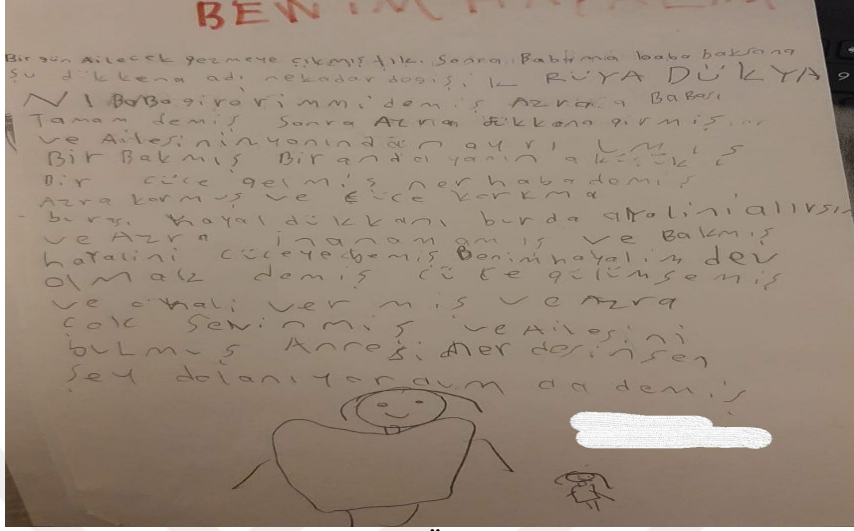 BENİM HAYALİM
Bir gün Ailecek gezmeye çıkmıştık. Sonra Babama baba baksana
şu dükkena adı nekadar degişik RÜYA DÜKYA
NI BaBa girorimmi demiş Azra Babası
Tamam demiş Sonra Azra dükkana girmiş
ve Ailesinin yanından ayrılmış
Bir Bakmış Bir anda yanına küçük
Bir cüce gelmiş merhaba demiş
Azra kormuş ve cüce korkma
burası hayal dükkanı burda alırsın
ve Azra inanamamış ve Bakmış
hayalini cüceye demiş Benim hayalim dev
olmak demiş cüce gülümsemiş
ve vermiş ve Azra
çok Sevinmiş ve Ailesini
bulmuş Annesi
şey dolanıyor demiş